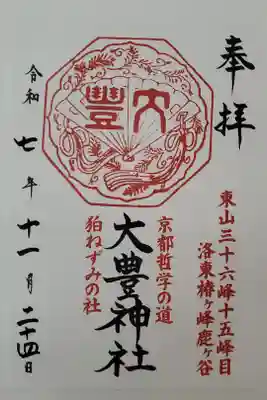 奉拝
東山三十六峰十五峰目
洛東椿ヶ峰鹿ヶ谷
大豊
京都哲学の道
大豊神社
狛ねずみの社
令和七年十一月二十四日